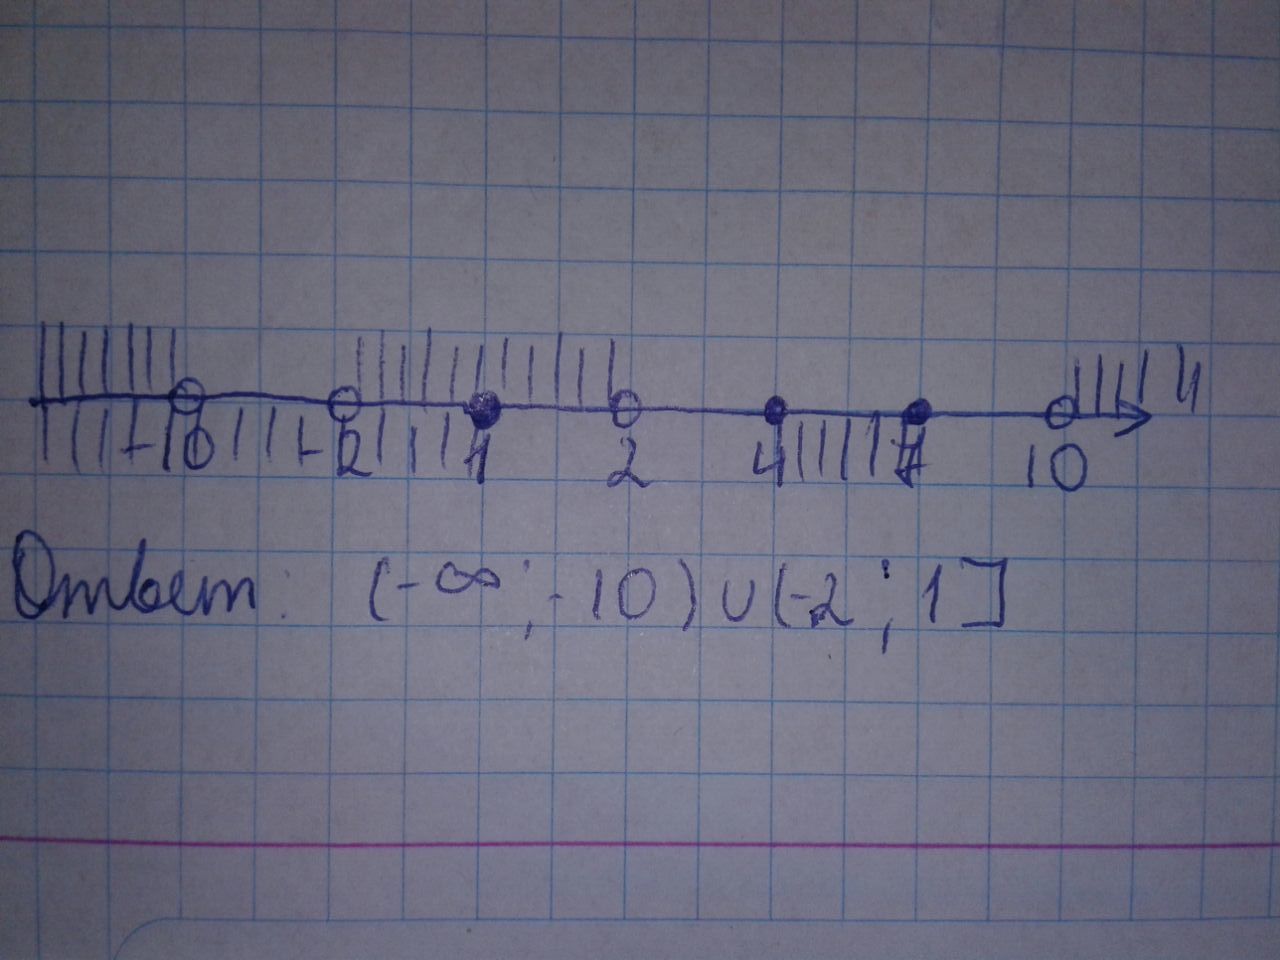 -10 -2 1 2 4 7 10 y
Ответ: (-∞; -10) ∪ (-2; 1]